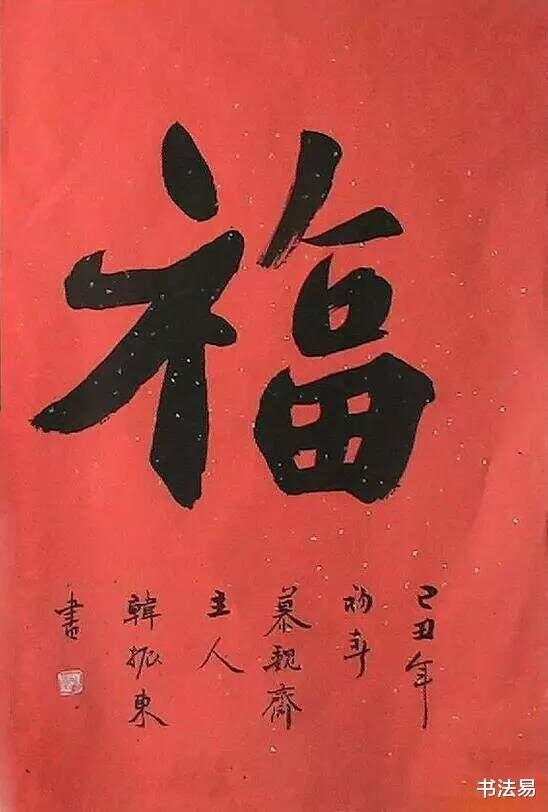 福
己丑年
初春
慕親齋
主人
韓振東
書
书法易